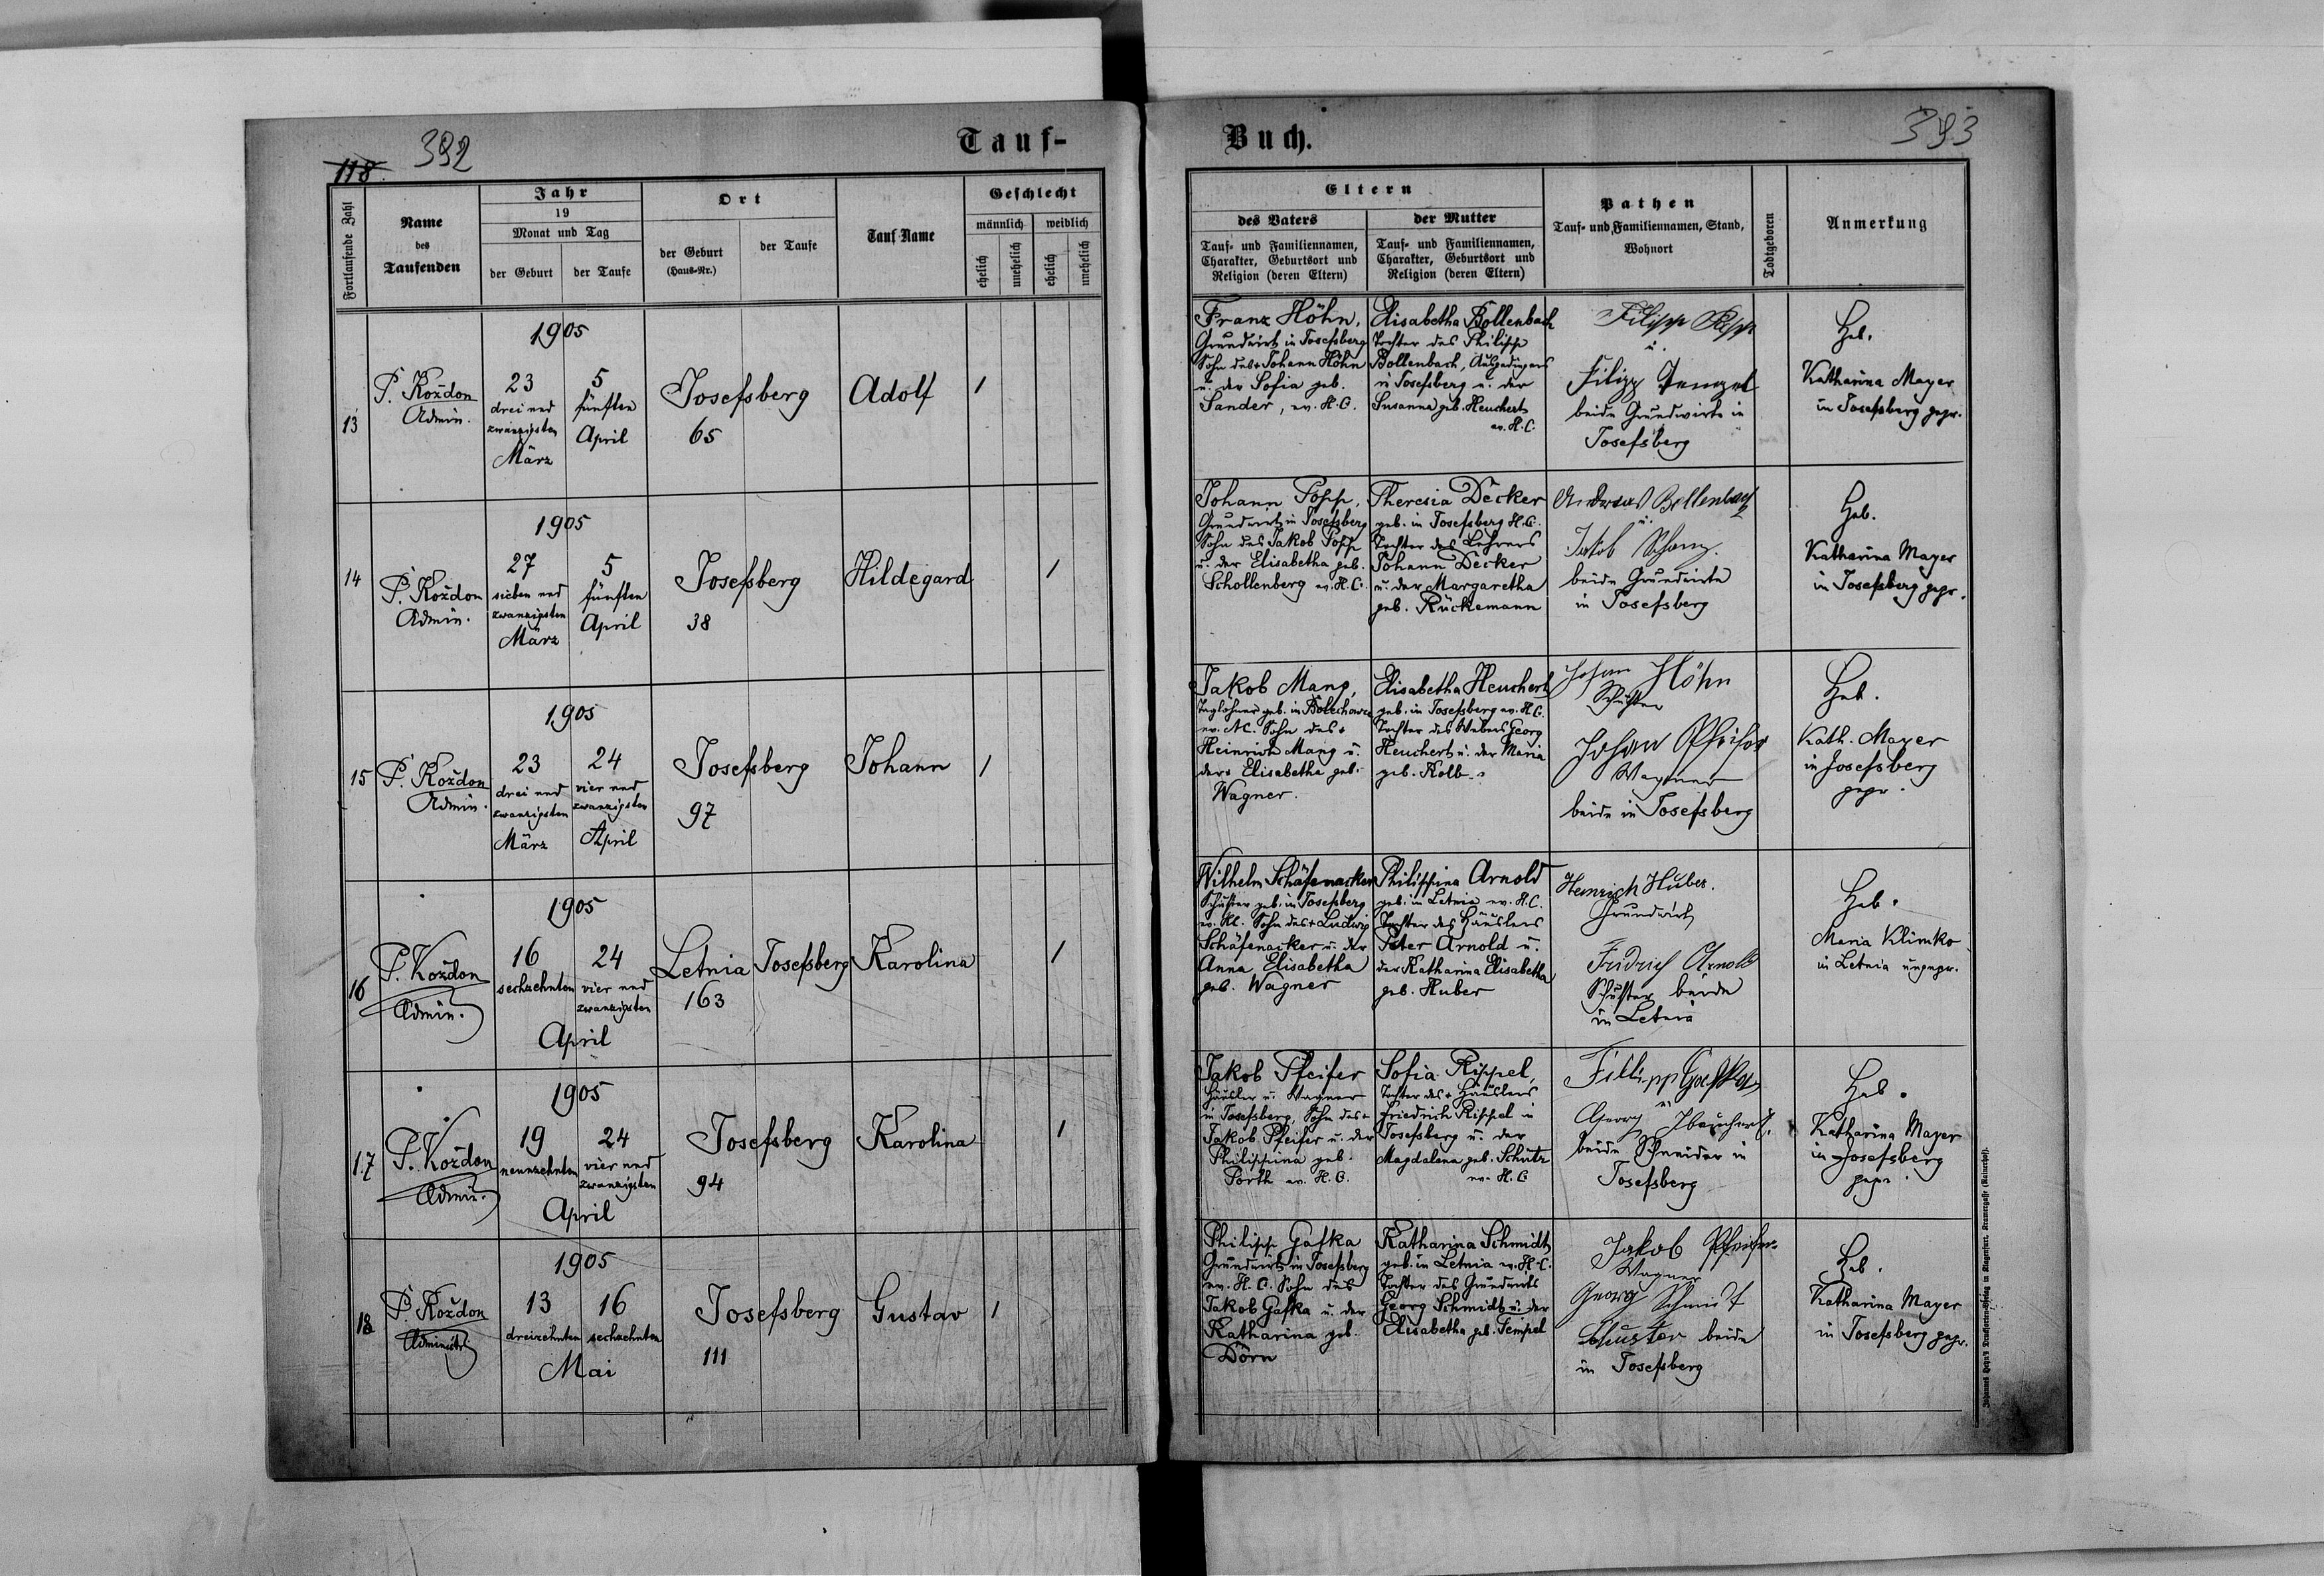 392
118.
Tauf-
Fortlaufende Zahl
Name
des
Taufenden
Jahr
19
Monat und Tag
der Geburt
der Taufe
Ort
der Geburt
(Haus-Nr.)
der Taufe
Tauf Name
Geschlecht
männlich
weiblich
ehelich
unehelich
ehelich
unehelich
13
P. Koždon
Admin.
1905
23
drei und
zwanzigsten
März
5
fünften
April
Josefsberg
65
Adolf
1
14
P. Koždon
Admin.
1905
27
sieben und
zwanzigsten
März
5
fünften
April
Josefsberg
38
Hildegard
1
15
P. Koždon
Admin.
1905
23
drei und
zwanzigsten
März
24
vier und
zwanzigsten
April
Josefsberg
97
Johann
1
16
P. Koždon
Admin.
1905
16
sechzehnten
24
vier und
zwanzigsten
April
Letnia
163
Josefsberg
Karolina
1
17
P. Koždon
Admin.
1905
19
neunzehnten
24
vier und
zwanzigsten
April
Josefsberg
94
Karolina
1
18
P. Koždon
1905
13
dreizehnten
16
sechzehnten
Mai
Josefsberg
111
Gustav
1
Buch.
393
Eltern
des Vaters
Tauf- und Familiennamen,
Charakter, Geburtsort und
Religion (deren Eltern)
der Mutter
Tauf- und Familiennamen,
Charakter, Geburtsort und
Religion (deren Eltern)
Pathen
Tauf- und Familiennamen, Stand,
Wohnort
Todtgeboren
Anmerkung
Franz Höhn,
Grundwirt in Josefsberg
Sohn des + Johann Höhn
u. der Sofia geb.
Sander, ev. H.C.
Elisabetha Bollenbach
Tochter des Philipp
Bollenbach, Ausgedingers
in Josefsberg u. der
Susanna geb. Heuchert
ev. H.C.
Filipp
u.
Filipp
beide Grundwirte in
Josefsberg
Heb.
Katharina Mayer
in Josefsberg gepr.
Johann Popp,
Grundwirt in Josefsberg
Sohn des Jakob Popp
u. der Elisabetha geb.
Schollenberg ev. H.C.
Theresia Decker
geb. in Josefsberg H.C.
Tochter des Lehrers
Johann Decker
u. der Margaretha
geb. Rückemann
Andreas Bollenbach
u.
Jakob
beide Grundwirte
in Josefsberg
Heb.
Katharina Mayer
in Josefsberg gepr.
Jakob Mang,
Taglöhner geb. in Bolechowce
ev. A.C. Sohn des +
Heinrich Mang u.
der + Elisabetha geb.
Wagner.
Elisabetha Heuchert
geb. in Josefsberg ev. H.C.
Tochter des Webers Georg
Heuchert u. der Maria
geb. Kolb
Johann Höhn
Schuster
Johann Pfeifer
Wagner
beide in Josefsberg
Heb.
Kath. Mayer
in Josefsberg
gepr.
Wilhelm Schäfenacker
Schuster geb. in Josefsberg
ev. H.C. Sohn des + Ludwig
Schäfenacker u. der
Anna Elisabetha
geb. Wagner
Philippina Arnold
geb. in Letnia ev. H.C.
Tochter des Häuslers
Peter Arnold u.
der Katharina Elisabetha
geb. Huber
Heinrich Huber.
Grundwirt
Fridrich Arnold
Schuster beide
in Letnia
Heb.
Maria Klimko
in Letnia ungepr.
Jakob Pfeifer
Häusler u. Wagner
in Josefsberg, Sohn des +
Jakob Pfeifer u. der
Philippina geb.
Porth ev. H.C.
Sofia Rippel,
Tochter des + Häuslers
Friedrich Rippel in
Josefsberg u. der
Magdalena geb. Schutz
ev. H.C.
Fillipp Gafka
u.
Georg Heuchert,
beide Schneider in
Josefsberg
Heb.
Katharina Mayer
in Josefsberg
gepr.
Philipp Gafka
Grundwirt in Josefsberg
ev. H.C. Sohn des
Jakob Gafka u. der
Katharina geb.
Dörn
Katharina Schmidt
geb. in Letnia ev. H.C.
Tochter des Grundwirts
Georg Schmidt u. der
Elisabetha geb. Tempel
Jakob Pfeifer
Wagner
Georg Schmidt
Schuster beide
in Josefsberg
Heb.
Katharina Mayer
in Josefsberg gepr.